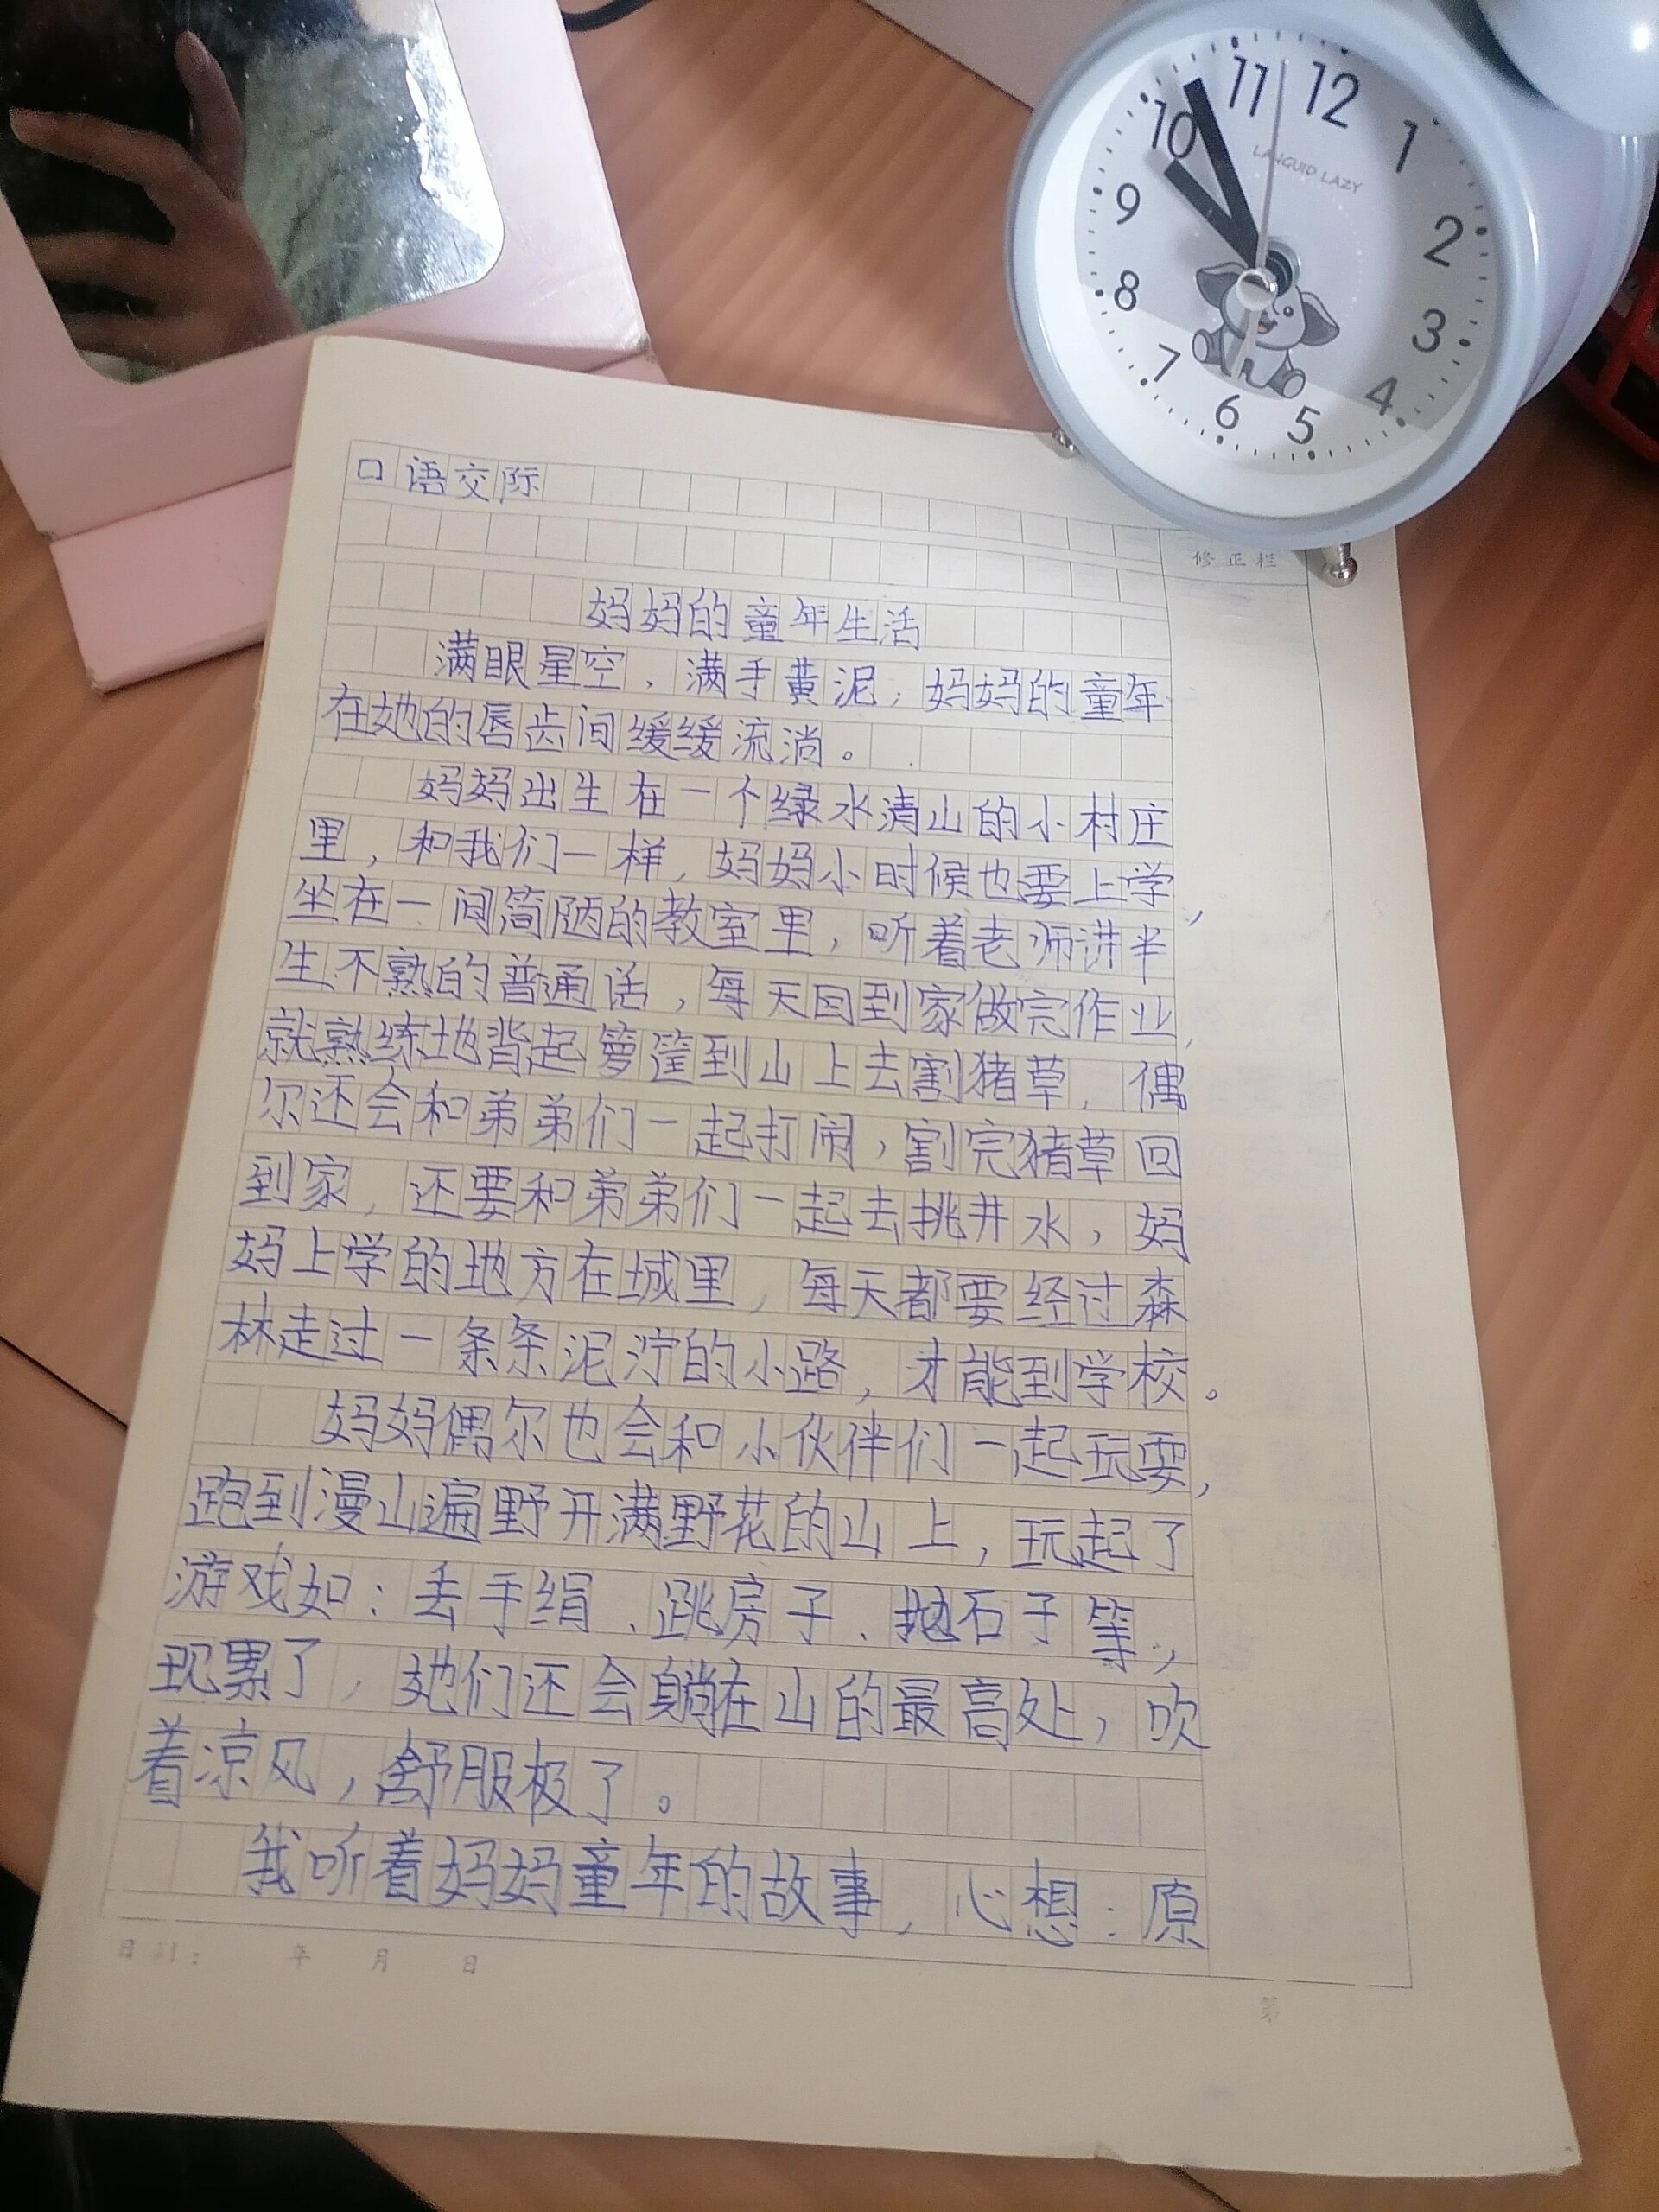 11 12 1
10
LANGUID LAZY
9
2
8
3
7
4
6 5
口语交际
修正栏
妈妈的童年生活
满眼星空，满手黄泥，妈妈的童年
在她的唇齿间缓缓流淌。
妈妈出生在一个绿水清山的小村庄
里，和我们一样，妈妈小时候也要上学，
坐在一间简陋的教室里，听着老师讲半
生不熟的普通话，每天回到家做完作业，
就熟练地背起箩筐到山上去割猪草，偶
尔还会和弟弟们一起打闹，割完猪草回
到家，还要和弟弟们一起去挑井水，妈
妈上学的地方在城里，每天都要经过森
林走过一条条泥泞的小路，才能到学校。
妈妈偶尔也会和小伙伴们一起玩耍，
跑到漫山遍野开满野花的山上，玩起了
游戏如：丢手绢、跳房子、抛石子等，
玩累了，她们还会躺在山的最高处，吹
着凉风，舒服极了。
我听着妈妈童年的故事，心想：原
日期： 年 月 日
第